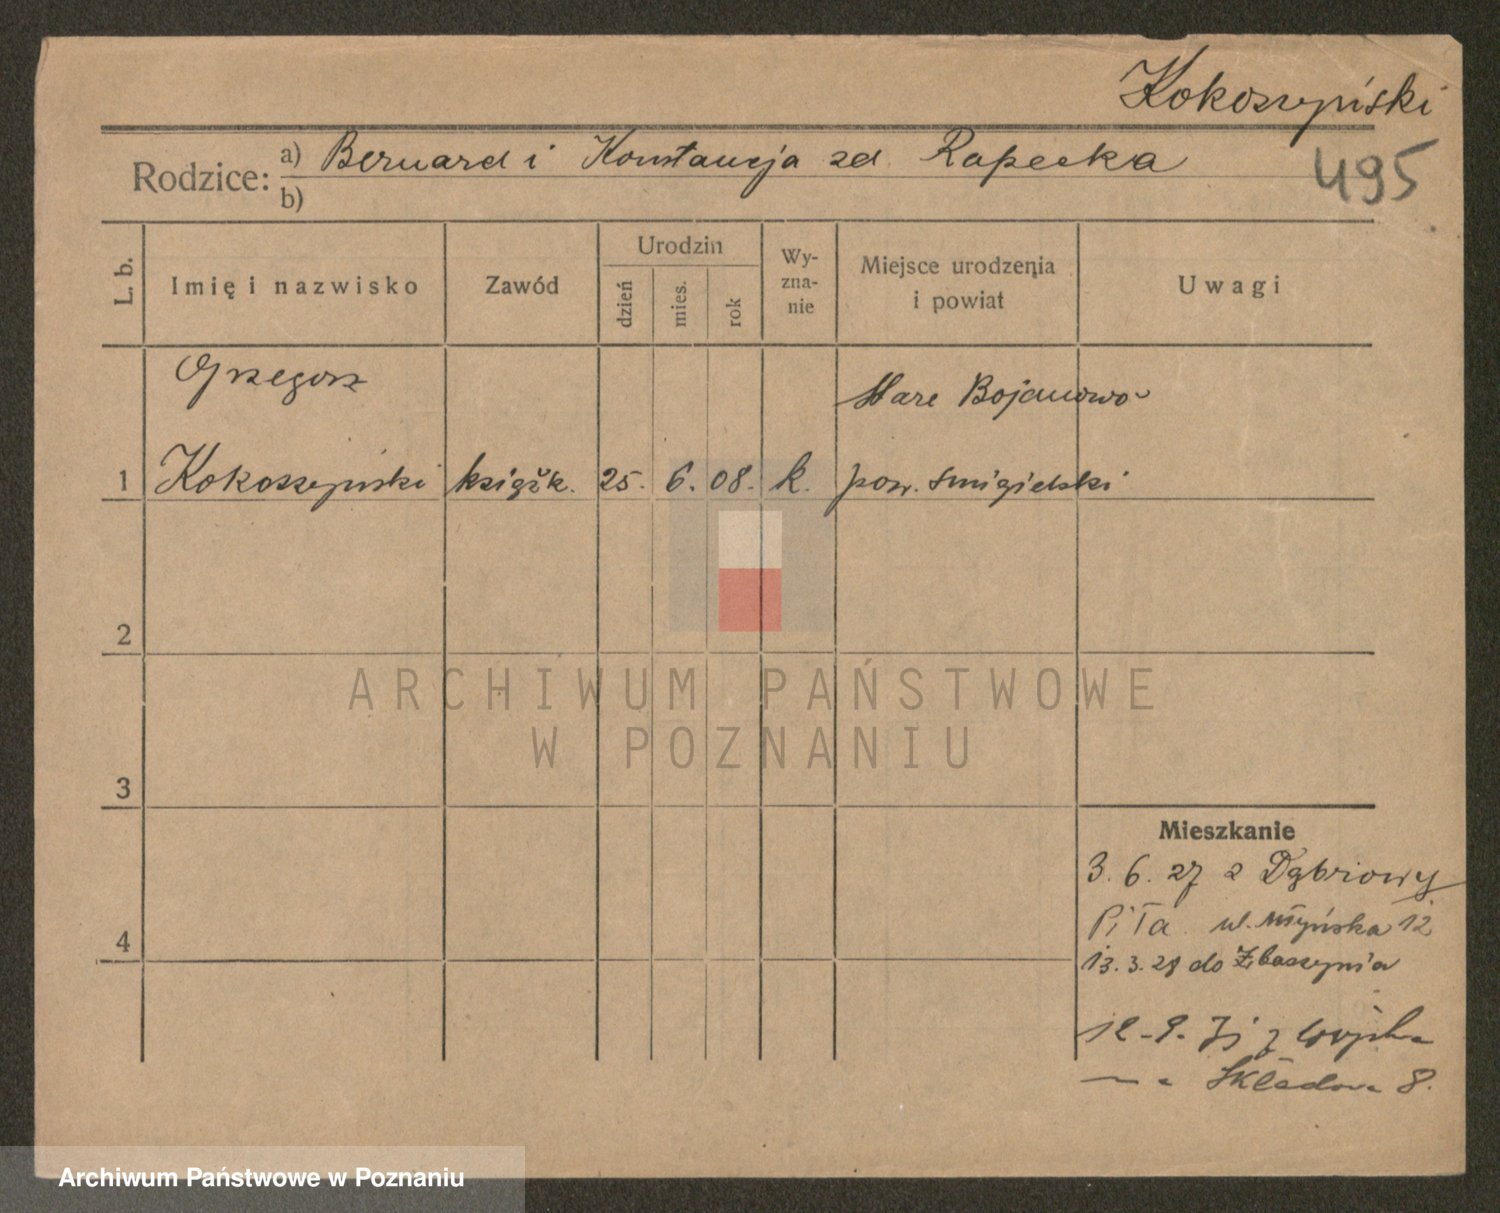 Kokoszyński
495
Rodzice: a) Bernard i Konstancja zd. Rapecka
b)
L. b. Imię i nazwisko Zawód Urodzin dzień mies. rok Wy-zna-nie Miejsce urodzenia i powiat Uwagi
Grzegorz Stare Bojanowo
1 Kokoszyński książk. 25. 6. 08. k. pow. śmigielski
2
ARCHIWUM PAŃSTWOWE
W POZNANIU
3
Mieszkanie
3. 6. 27 z Dąbrowy
4 Piła ul. Młyńska 12
13. 3. 28 do Zbąszynia
12-9- z wojska
na Składowa 8.
Archiwum Państwowe w Poznaniu